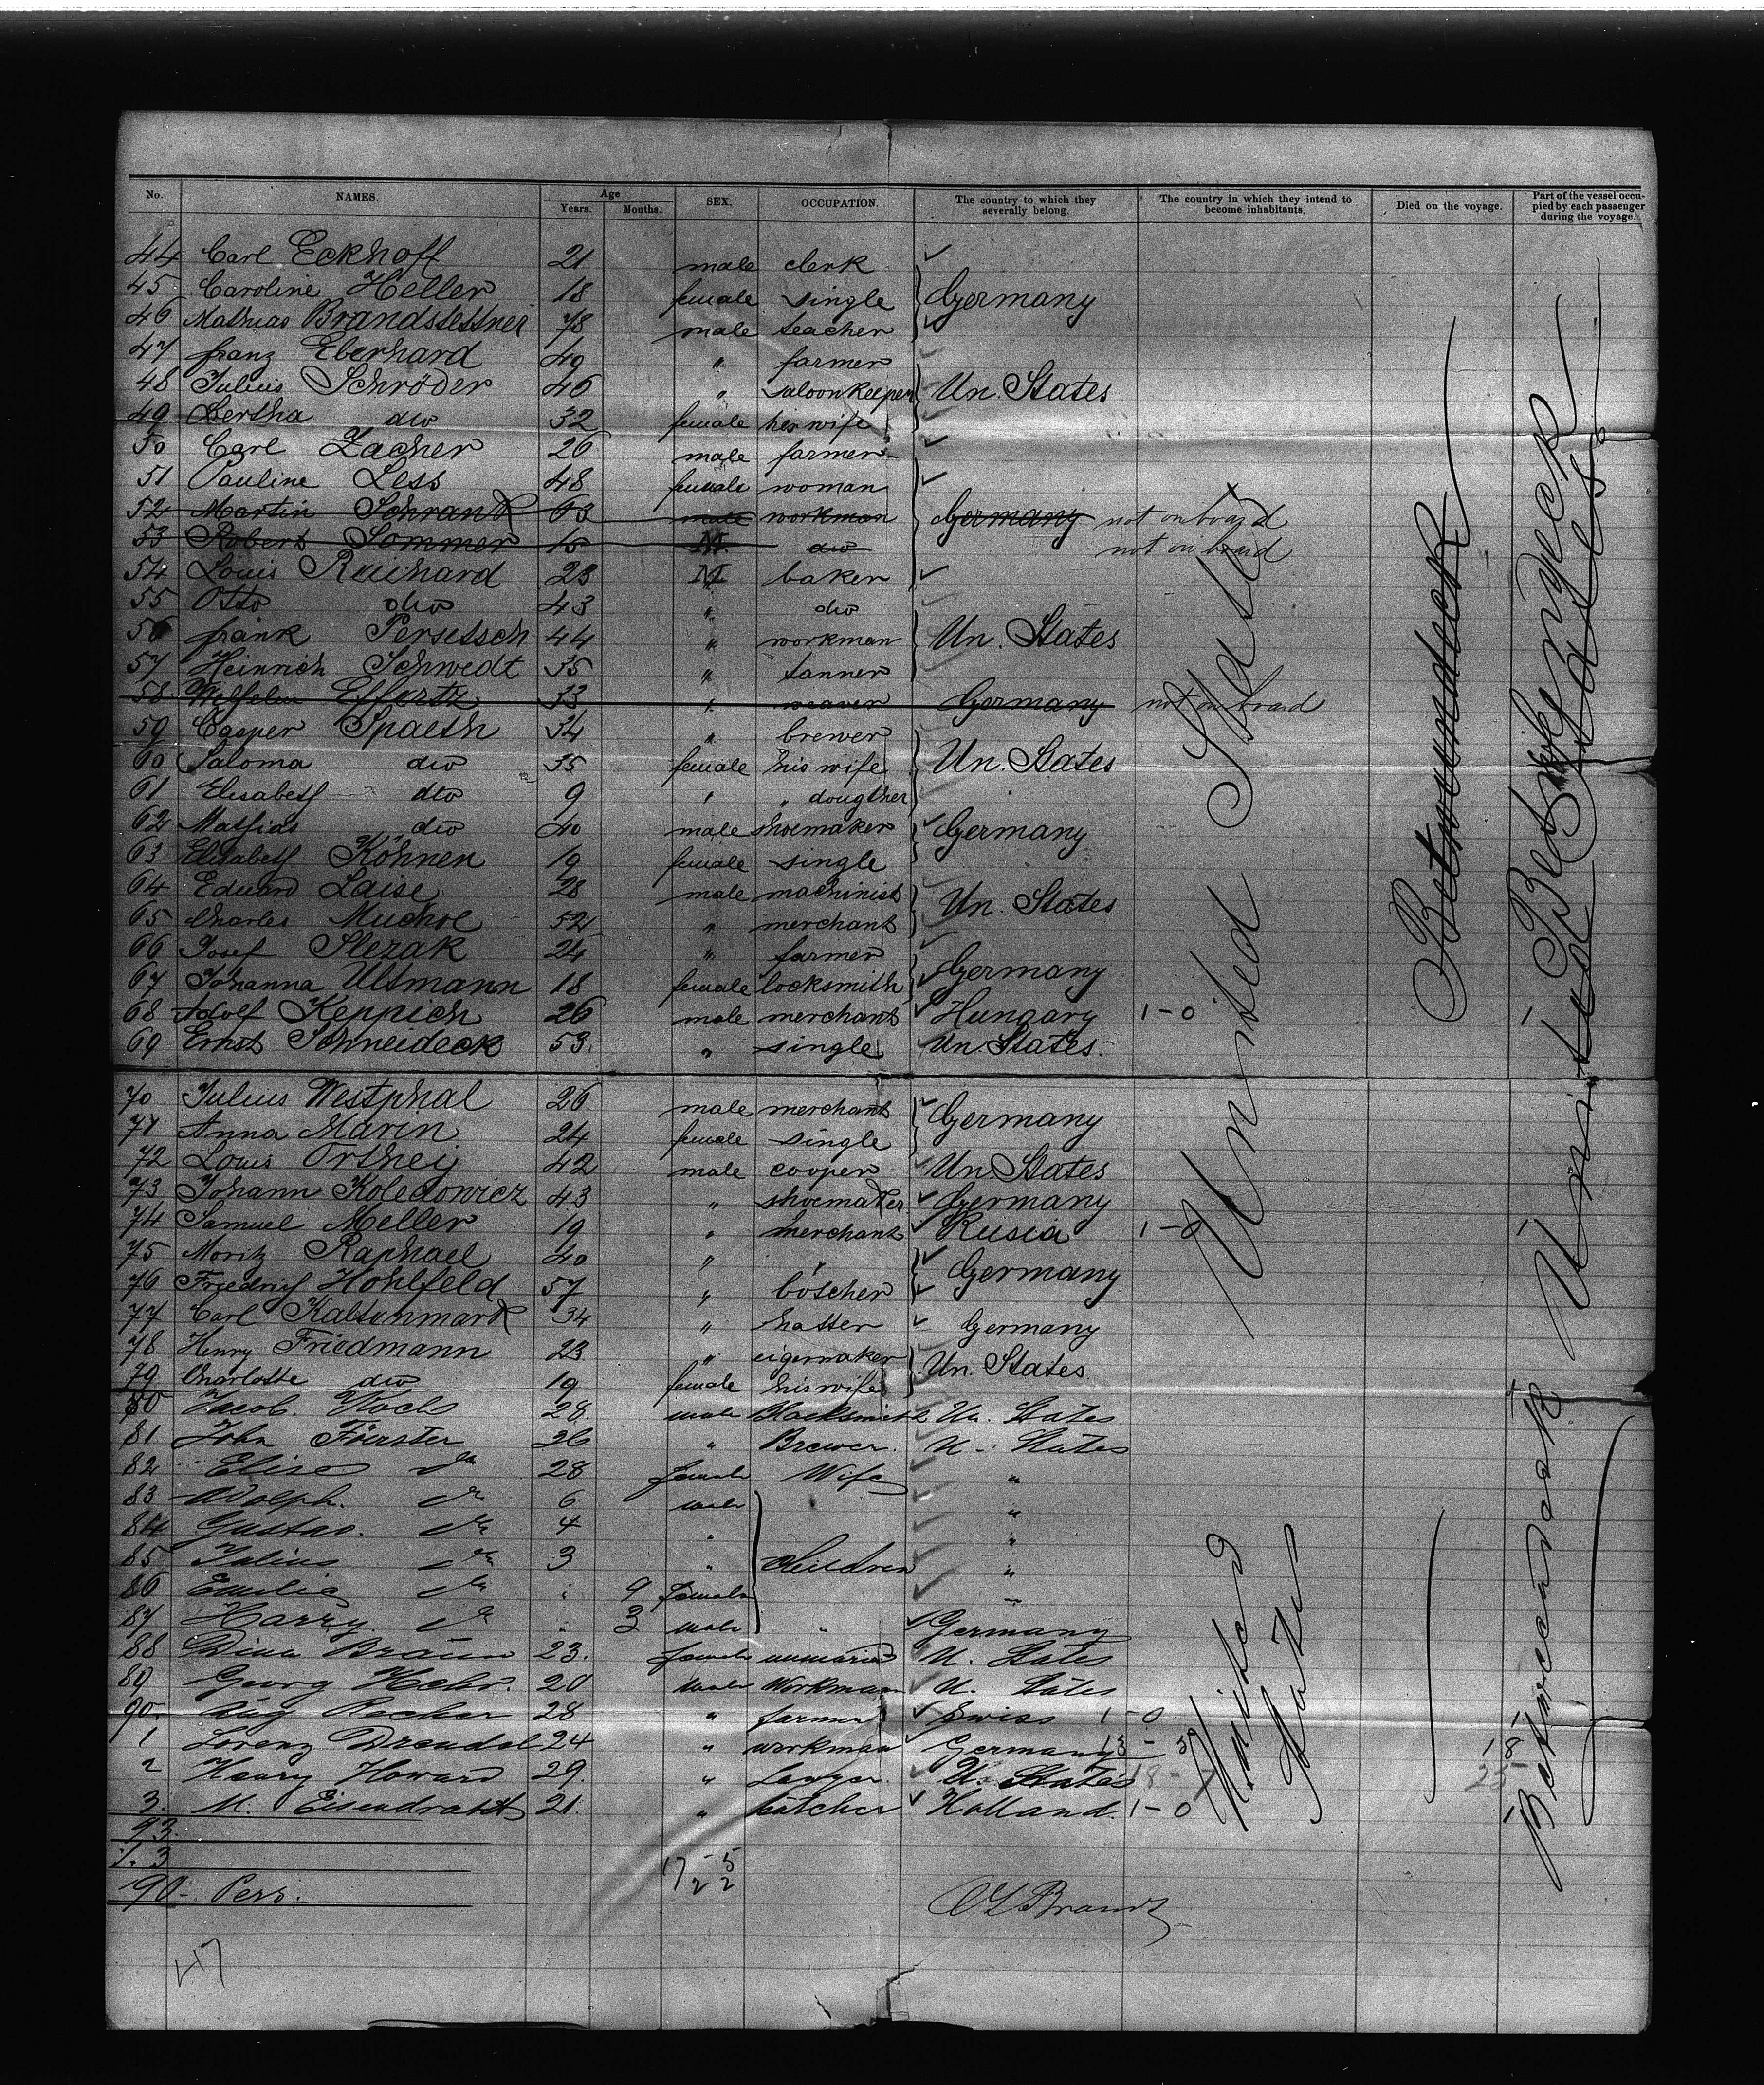 No. NAMES. Age Years. Months. SEX. OCCUPATION. The country to which they severally belong. The country in which they intend to become inhabitants. Died on the voyage. Part of the vessel occupied by each passenger during the voyage.
44 Carl Eckhoff 21 male clerk
45 Caroline Heller 18 female single Germany
46 Mathias Brandstettner 78 male teacher
47 franz Eberhard 49 " farmer
48 Julius Schröder 46 " saloonkeeper Un. States
49 Bertha dto 32 female her wife
50 Carl Zacher 26 male farmer
51 Pauline Less 48 female woman
52 Martin Schrank 63 male workman Germany not on board
53 Robert Sommer 15 M. dto not on board
54 Louis Ruichard 23 M baker
55 Otto dto 43 " dto
56 frank Persetsch 44 " workman Un. States
57 Heinrich Schwedt 35 " tanner
58 Wilhelm Effertz 33 " weaver Germany not on board
59 Casper Spaeth 34 " brewer
60 Saloma dto 35 female his wife Un. States
61 Elisabeth dto 9 " " dougther
62 Mathias dto 40 male shoemaker Germany
63 Elisabeth Köhnen 19 female single
64 Eduard Laise 28 male machinist Un. States
65 Charles Muchol 52 " merchant
66 Josef Slezak 24 " farmer
67 Johanna Ultmann 18 female locksmith Germany
68 Adolf Keppich 26 male merchant Hungary 1-0
69 Ernst Schneideck 53. " single Un. States.
70 Julius Westphal 26 male merchant Germany
71 Anna Marin 24 female single
72 Louis Orthey 42 male cooper Un States
73 Johann Koledowicz 43 " shoemaker Germany
74 Samuel Meller 19 " merchant Rusia 1-0
75 Moritz Raphael 40 " "
76 Friedrich Hohlfeld 57 " bötcher Germany
77 Carl Kaltschmark 34 " hatter Germany
78 Henry Friedmann 23 " cigermaker Un. States.
79 Charlotte dto 19 female his wife
80 Jacob. Koch 28. male Blacksmith Un. States
81 John Förster 26 " Brewer. U. States
82 Elise do 28 female Wife "
83 Adolph. do 6 male "
84 Gustav. do 4 " "
85 Julius do 3 " Children "
86 Emilie do 9 female "
87 Harry. do 3 male " Germany
88 Dina Braun 23. female unmaried U. States
89 Georg Hehr. 20 male Workman U. States
90. Aug Recher 28 " farmer Swiss 1-0
1 Lorenz Drendel 24 " workman Germany 13-5 18
2 Henry Howard 29. " U. States 18-7 25
3. M. Eisendraht 21. " bötcher Holland. 1-0
93.
%. 3
90- Pers.
17-5
2 2
United States
Betweendeck
Betweendeck
United States
United States
Betweendeck